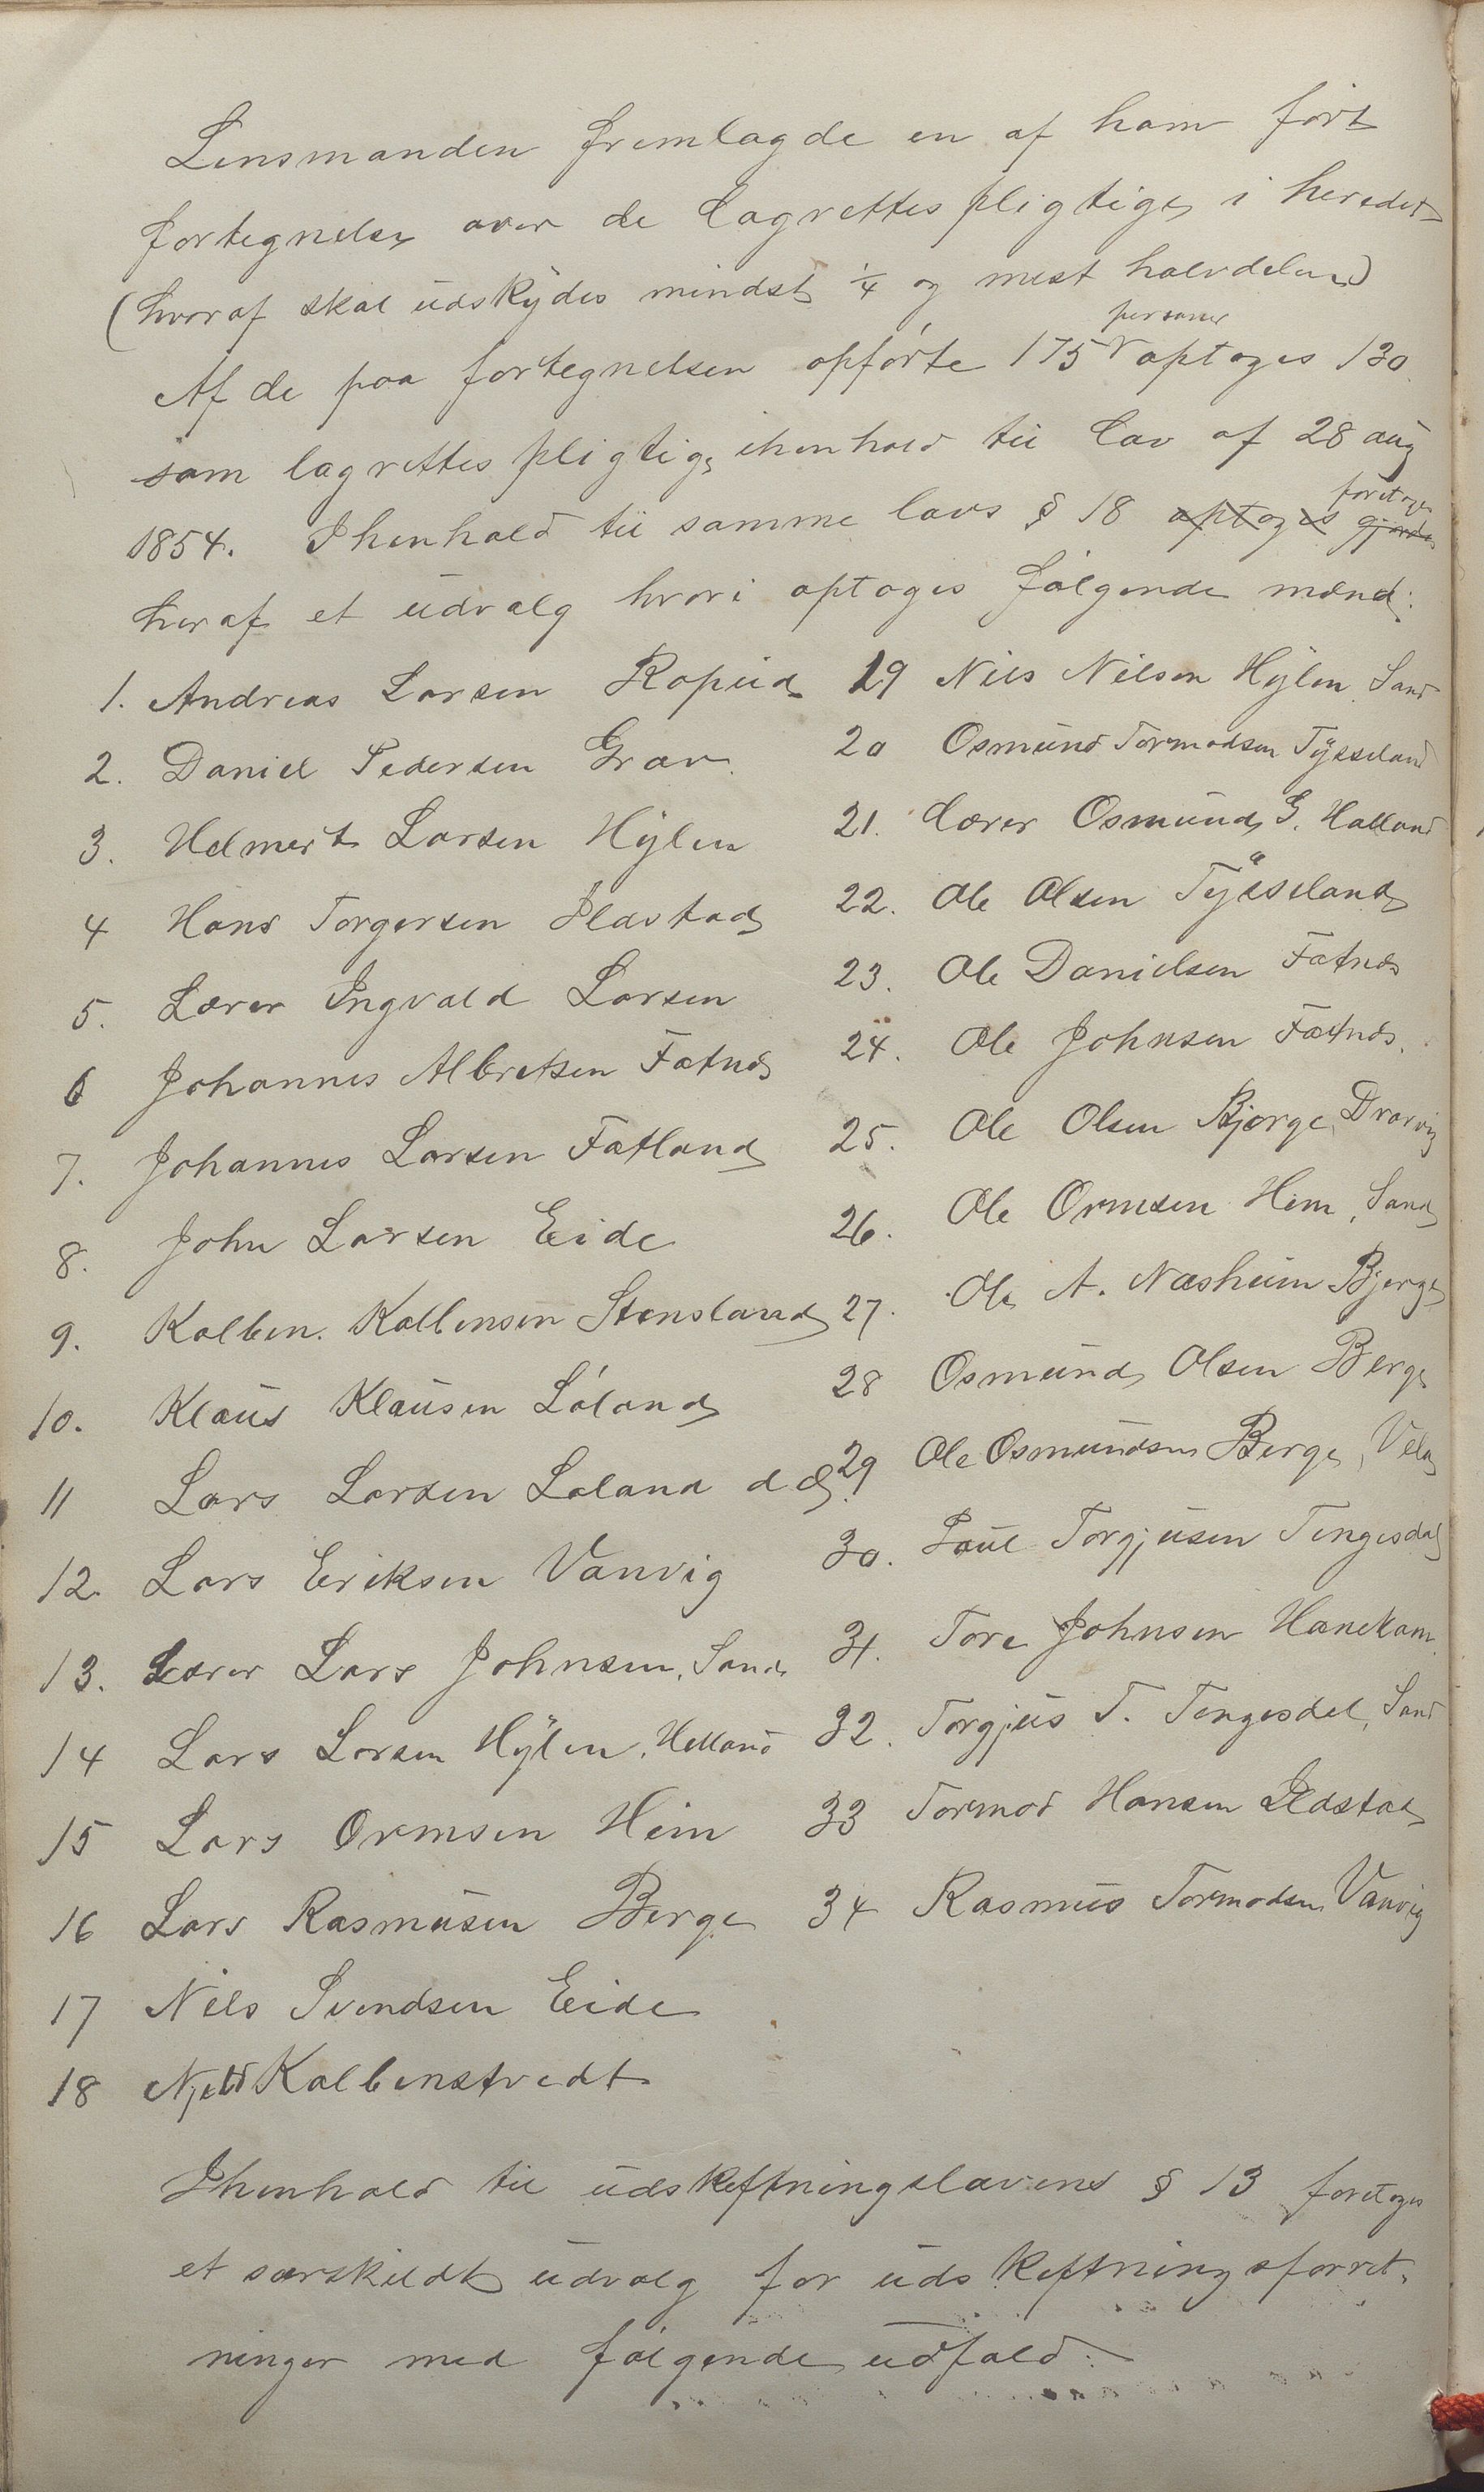 Lensmanden fremlagde en af ham ført
fortegnelse over de lagrettespligtige i heredet
(hvoraf skal udskydes mindst ¼ og mest halvdelen)
personer
Af de paa fortegnelsen opførte 175 optoges 130
som lagrettespligtige ihenhold til lov af 28 aug
foretoges
1854. Ihenhold til samme lovs § 18 optoges gjordes
heraf et udvalg hvori optoges følgende mænd:
1. Andreas Larsen Ropeid
2. Daniel Pedersen Grov
3. Helmert Larsen Hylen
4 Hans Torgersen Ilstad
5. Lærer Ingvald Larsen
6 Johannes Albretsen Fatnes
7. Johannes Larsen Fatland
8. John Larsen Eide
9. Kolben. Kolbensen Stensland
10. Klaus Klausen Løland
11 Lars Larsen Løland d æ.
12. Lars Eriksen Vanvig
13. Lærer Lars Johnsen, Sand
14 Lars Larsen Hylen, Helland
15 Lars Ormsen Heim
16 Lars Rasmusen Berge
17 Nils Svendsen Eide
18 Njeld Kolbenstvedt
19 Nils Nilsen Hylen, Sand
20 Osmund Tormodsen Tysseland
21. Lærer Osmund G. Halland
22. Ole Olsen Tysseland
23. Ole Danielsen Fatnes
24. Ole Johnsen Fatnes.
25. Ole Olsen Bjerge, Drarvig
26. Ole Ormsen Heim, Sand
27. Ole A. Næsheim Bjerge
28 Osmund Olsen Berge
29 Ole Osmundsen Berge, Vela
30. Paul Torgjusen Tengesdal
31. Tore Johnsen Hanekam
32. Torgjus T. Tengesdal, Sand
33 Tormod Hansen Ilstad
34 Rasmus Tormodsen Vanvig
Ihenhold til udskiftningslovens § 13 foretoges
et særskildt udvalg for udskiftningsforret-
ninger med følgende udfald: